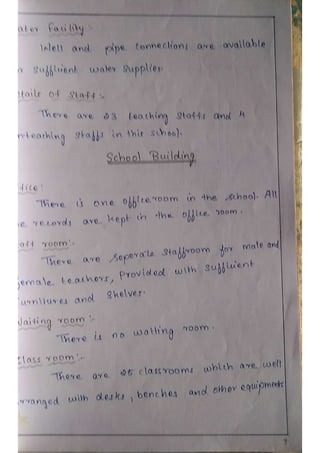 ater Facility :-
Well and pipe connections are available
r sufficient water supplies.
etails of Staff :-
There are 23 teaching staffs and 4
nteaching staffs in this school.
School Building
ffice:
There is one office room in the school. All
e records are kept in the office room.
aff room:-
There are seperate staffroom for male and
female teachers, provided with sufficient
urnitures and shelves.
Waiting room :-
There is no waiting room.
Class room:-
There are 25 classrooms which are well
rranged with desks, benches and other equipments